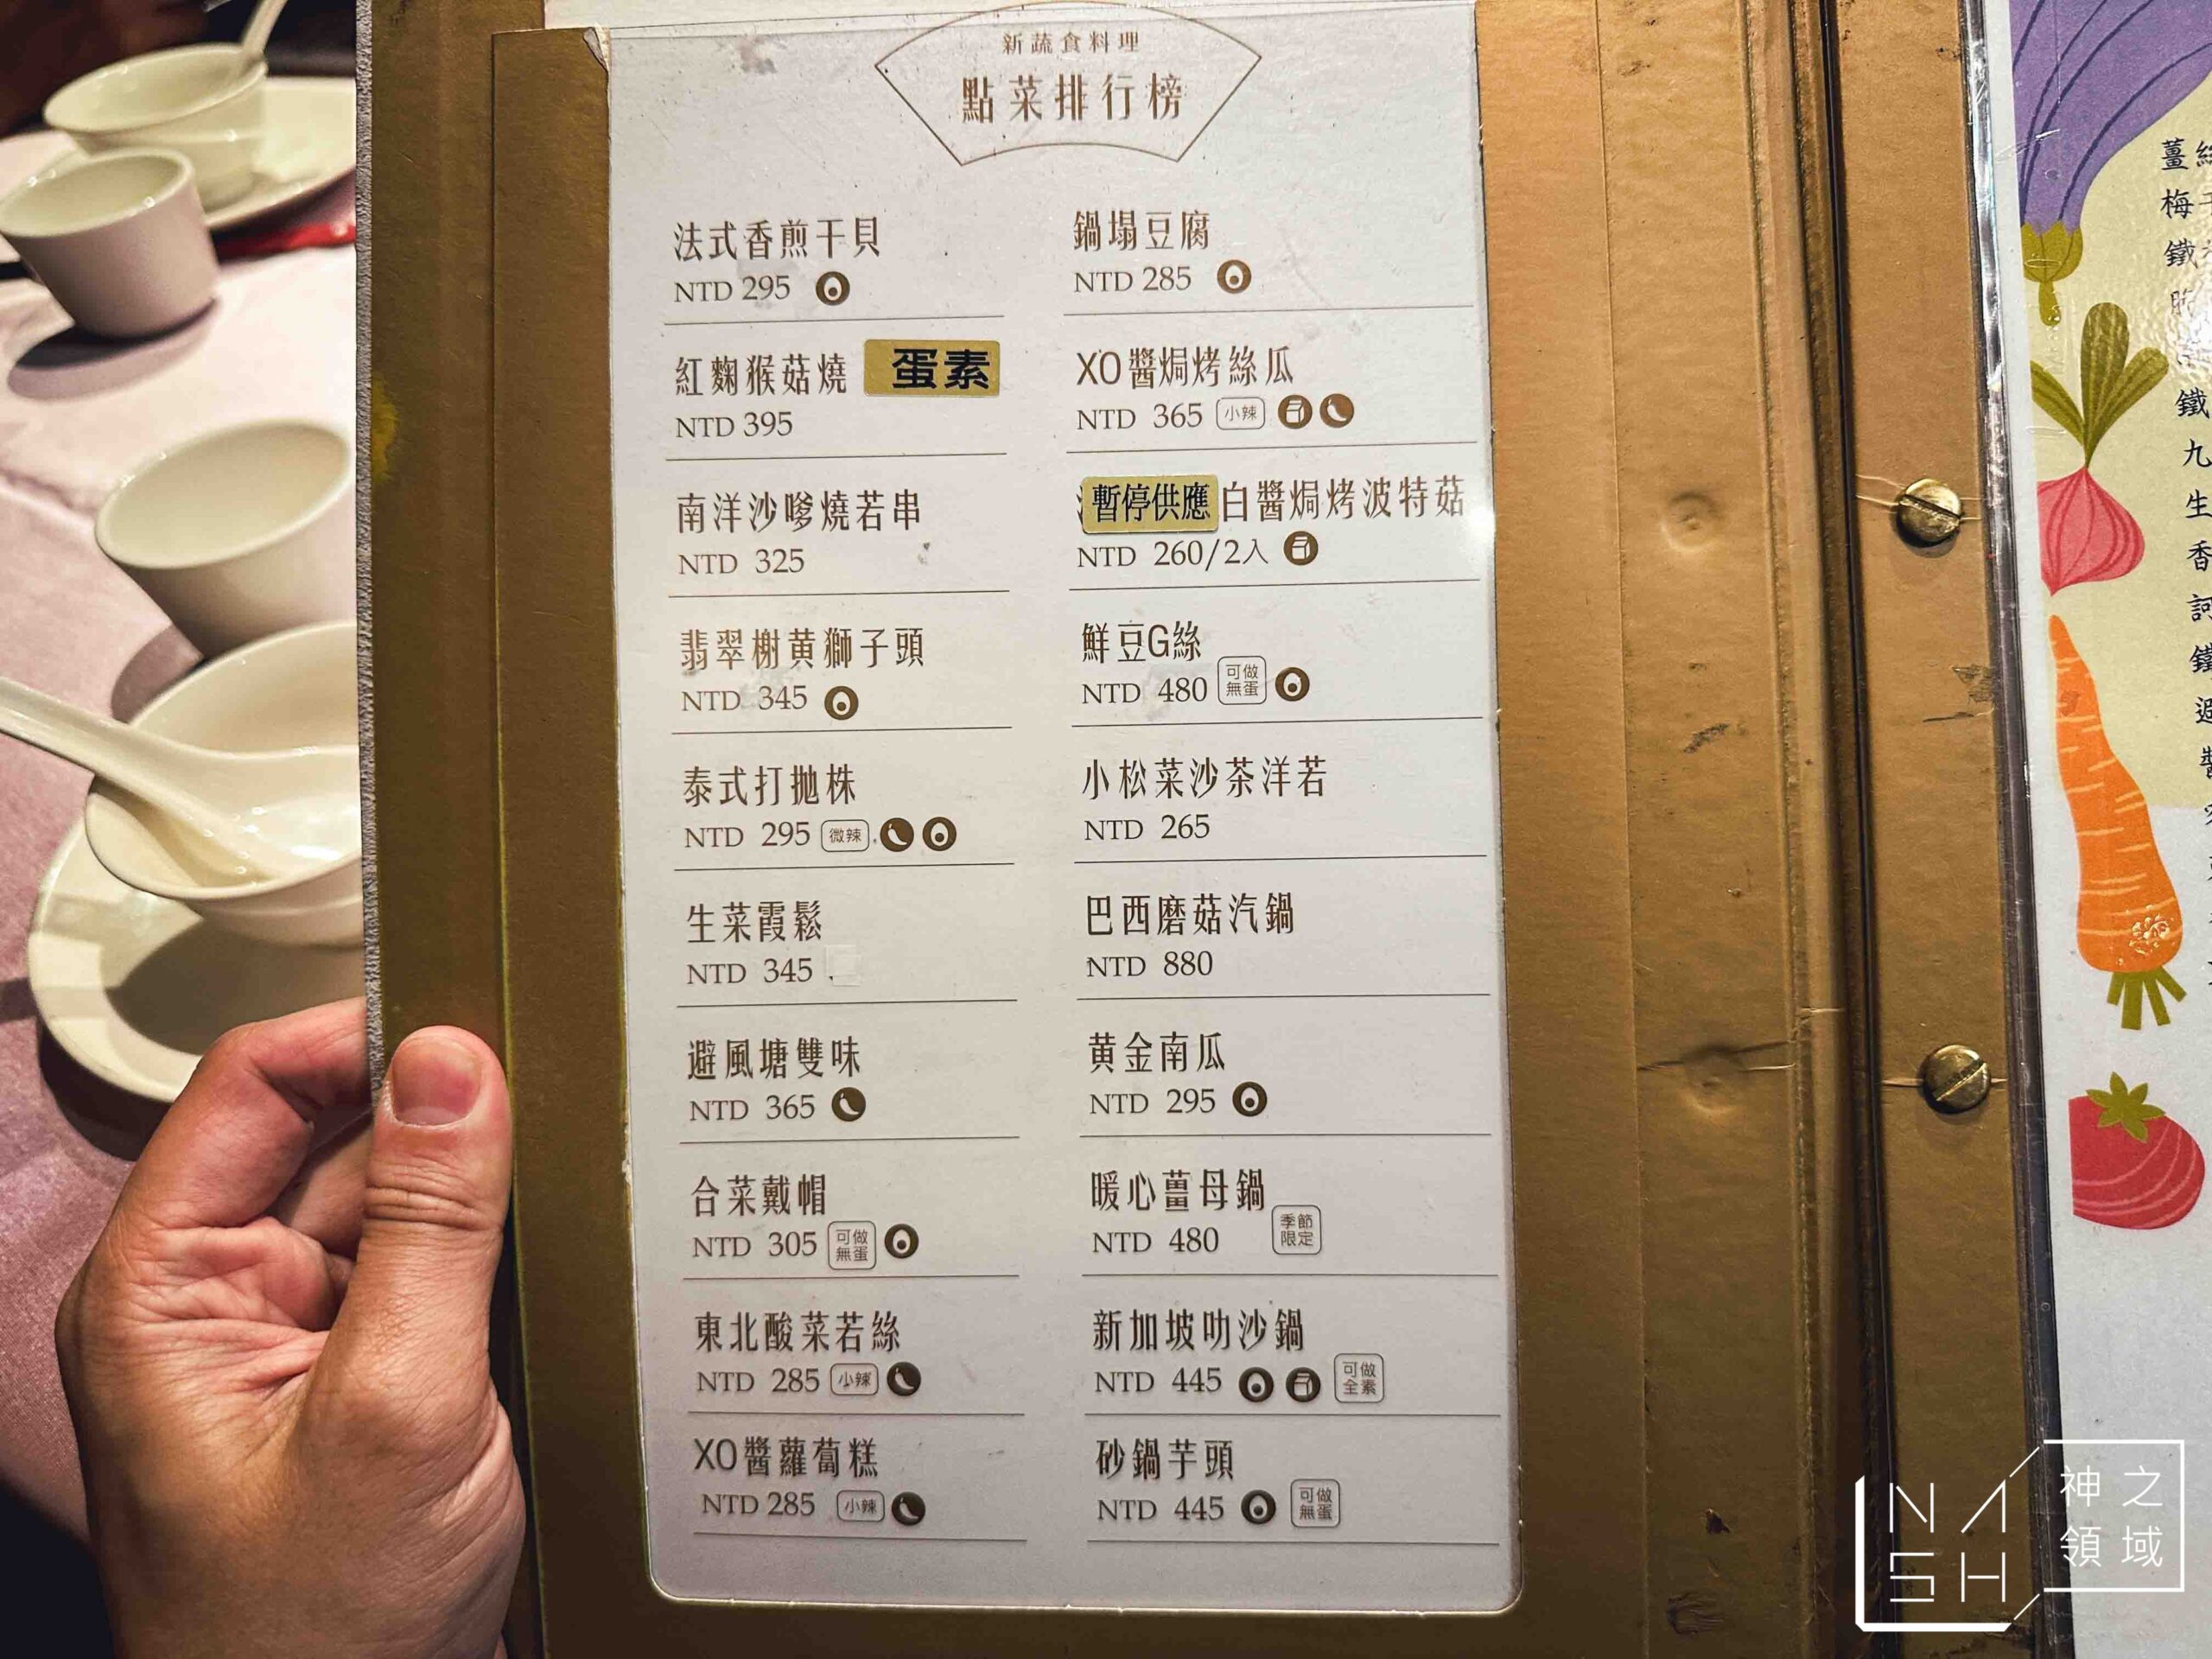 新蔬食料理
點菜排行榜
法式香煎干貝
NTD 295
紅麴猴菇燒 蛋素
NTD 395
南洋沙嗲燒若串
NTD 325
翡翠榭黄獅子頭
NTD 345
泰式打拋株
NTD 295 微辣
生菜霞鬆
NTD 345
避風塘雙味
NTD 365
合菜戴帽
NTD 305 可做無蛋
東北酸菜若絲
NTD 285 小辣
XO醬蘿蔔糕
NTD 285 小辣
鍋塌豆腐
NTD 285
XO醬焗烤絲瓜
NTD 365 小辣
暫停供應 白醬焗烤波特菇
NTD 260/2入
鮮豆G絲
NTD 480 可做無蛋
小松菜沙茶洋若
NTD 265
巴西磨菇汽鍋
NTD 880
黄金南瓜
NTD 295
暖心薑母鍋
NTD 480 季節限定
新加坡叻沙鍋
NTD 445 可做全素
砂鍋芋頭
NTD 445 可做無蛋
薑
梅
鐵
鐵
九
生
香
NASH
神之
領域